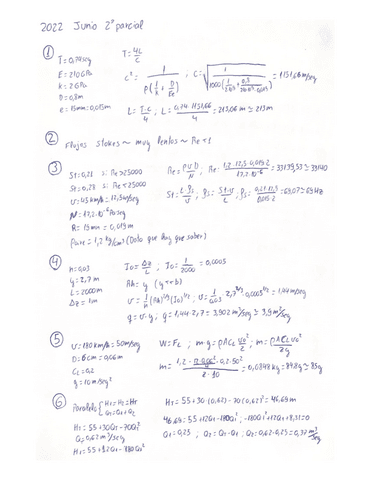 2022 Junio 2º parcial
①
T=0,74seg
E=210GPa
K=2GPa
D=0,8m
e=15mm=0,015m
T=4L/C
c²=1/ρ(1/K+D/Ee) ; C=√1/1000(1/2·10⁹+0,8/210·10⁹·0,015)=1151,66m/seg
L=T·C/4 ; L=0,74·1151,66/4=213,06m≃213m
② Flujos Stokes ~ muy lentos ~ Re<1
③ St=0,21 si Re>25000
St=0,28 si Re<25000
v=45km/h=12,5m/seg
N=17,2·10⁻⁶Pa·seg
R=19mm=0,019m
ρaire=1,2kg/m³ (Dato que hay que saber)
Re=ρvD/N ; Re=
St=L·ρs/v ; ρs=St·v/L ; ρs=
④ n=0,03
y=2,7m
L=2000m
Δz=1m
Io=Δz/L ; Io=1/2000=0,0005
Rh=y (y<<b)
v=1/n(Rh)^2/3(Io)^1/2 ; v=1/0,03·2,7^2/3·0,0005^1/2=1,44m/seg
q=v·y ; q=1,44·2,7=3,902m²/seg≃3,9m²/seg
⑤ v=180km/h=50m/seg
D=6cm=0,06m
CL=0,2
g=10m/seg²
W=FL ; m·g=ρACL v²/2 ; m=ρACLv²/2g
m=1,2·π·0,06²·0,2·50²/2·10=0,0848kg=84,8g≃85g
⑥ Paralelo {H1=H2=HT
Q1+Q2
HT=55+30QT-70QT²
QT=0,62m³/seg
H1=55+12Q1-180Q1²
HT=55+30·(0,62)-70(0,62)²=46,69m
46,69=55+12Q1-180Q1² ; -180Q1²+12Q1+8,31=0
Q1=0,25 ; Q2=QT-Q1 ; Q2=0,62-0,25=0,37m³/seg